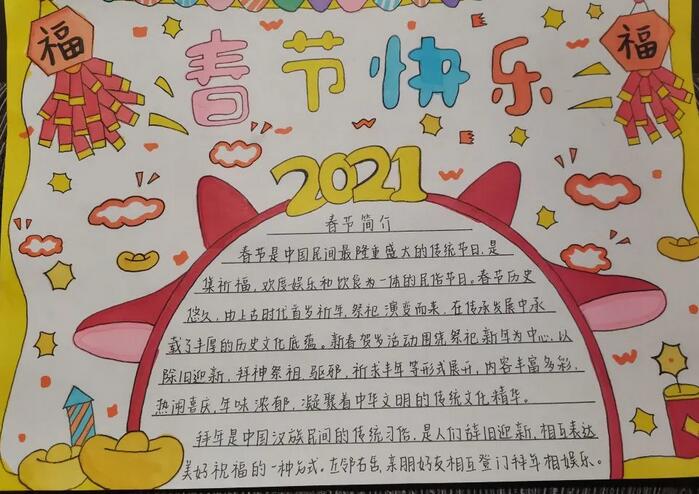 福
福
春节快乐
2021
春节简介
春节是中国民间最隆重盛大的传统节日,是
集祈福、欢度娱乐和饮食为一体的民俗节日。春节历史
悠久,由上古时代首岁祈年、祭祀演变而来,在传承发展中承
载了丰厚的历史文化底蕴。新春贺岁活动围绕祭祀新年为中心,以
除旧迎新、拜神祭祖、驱邪、祈求丰年等形式展开,内容丰富多彩,
热闹喜庆,年味浓郁,凝聚着中华文明的传统文化精华。
拜年是中国汉族民间的传统习俗,是人们辞旧迎新、相互表达
美好祝福的一种方式。左邻右舍、亲朋好友相互登门拜年相娱乐。